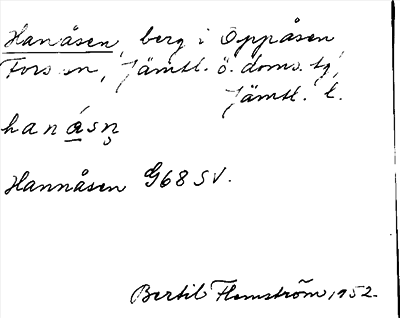 Hanåsen, berg i Oppåsen
Fors sn, Jämtl. ö. doms. tg,
Jämtl. l.
hanåsn̥
Hannåsen G68 SV.
Bertil Flemström, 1952.